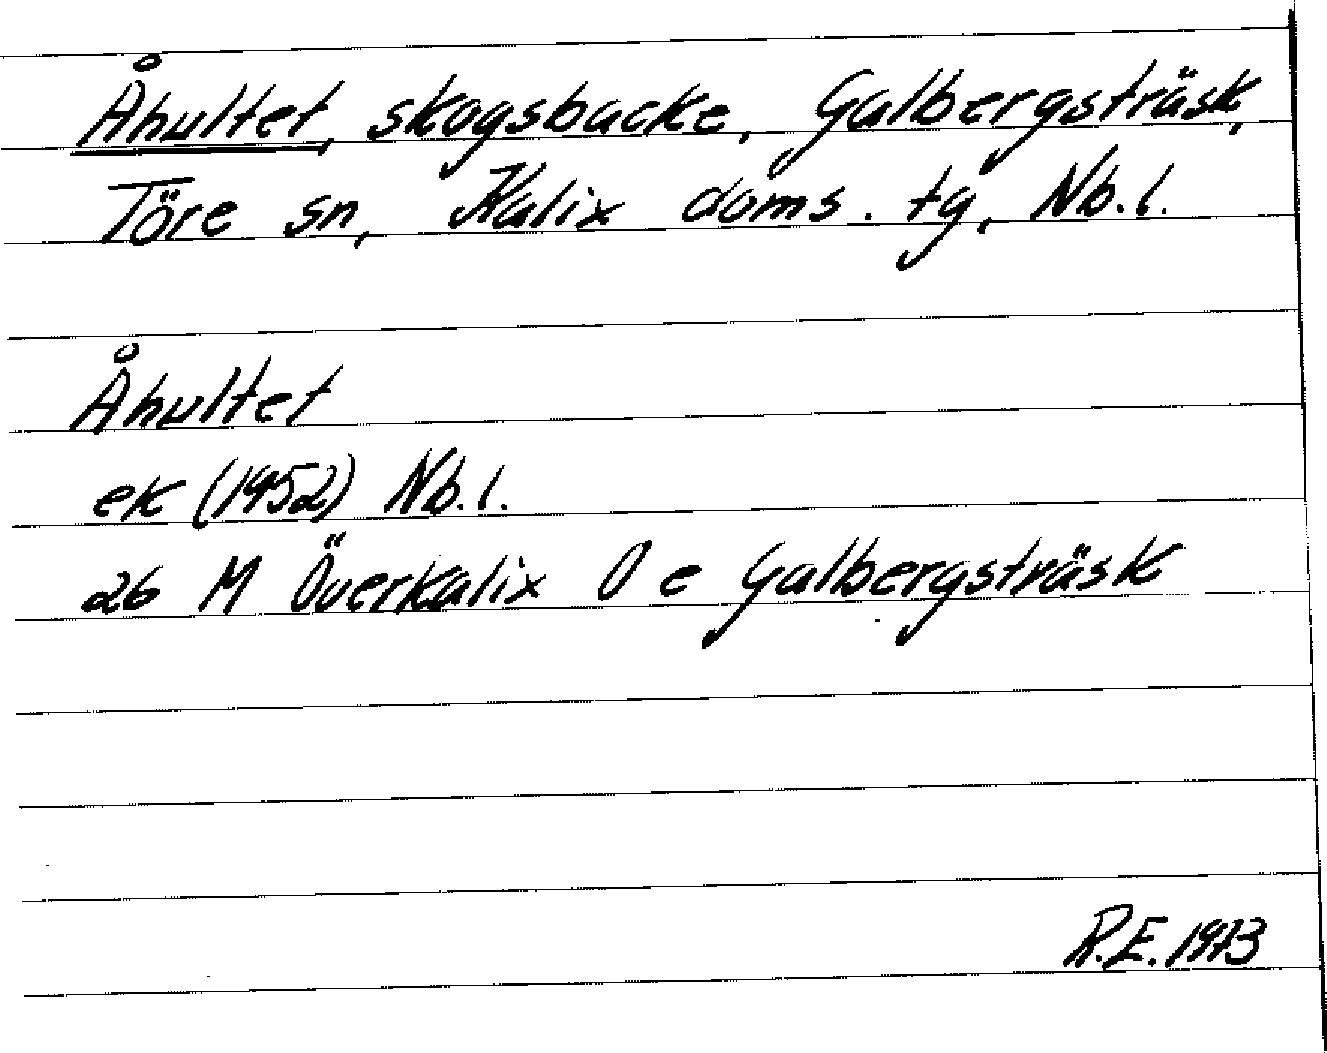 Åhultet, skogsbacke, Galbergsträsk,
Töre sn, Kalix doms. tg, Nb. l.
Åhultet
ek (1952) Nb. l.
26 M Överkalix O e Galbergsträsk
R.E. 1973